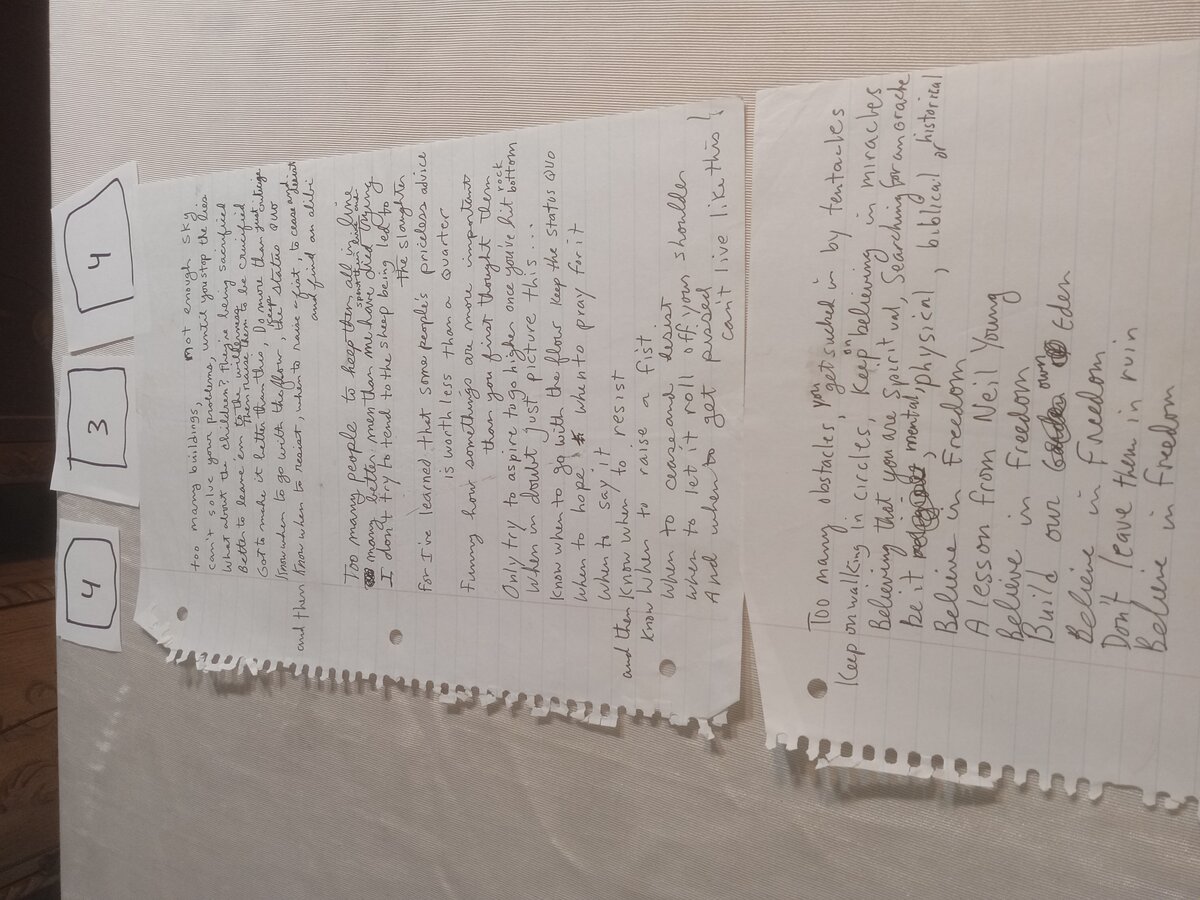 4 3 4
too many buildings, not enough sky
can't solve your problems, until you stop the lies
What about the children? They're being sacrificed
Better to leave em to the wilderness
Then raise them to be crucified
Got to make it better than this, Do more than just
Know when to go with the flow, Keep the status quo
and then Know when to resist, when to raise a fist, to cease and desist
and find an alibi
Too many people to keep them all in line
spent their lives and
many better men than me have died trying
I don't try to tend to the sheep being led to
the slaughter
For I've learned that some people's priceless advice
is worth less than a quarter
Funny how some things are more important
than you first thought them
Only try to aspire to go higher once you've hit rock bottom
When in doubt just picture this...
Know when to go with the flow keep the status quo
When to hope, when to pray for it
When to say it
and then Know when to resist
Know when to raise a fist
When to cease and desist
When to let it roll off your shoulder
And when to get pissed
can't live like this!
Too many obstacles, you get sucked in by tentacles
Keep on walking in circles, Keep on believing in miracles
Believing that you are Spiritual, Searching for an oracle
be it mental, physical, biblical or historical
Believe in Freedom
A lesson from Neil Young
Believe in Freedom
Build our own Eden
Believe in Freedom
Don't leave them in ruin
Believe in Freedom